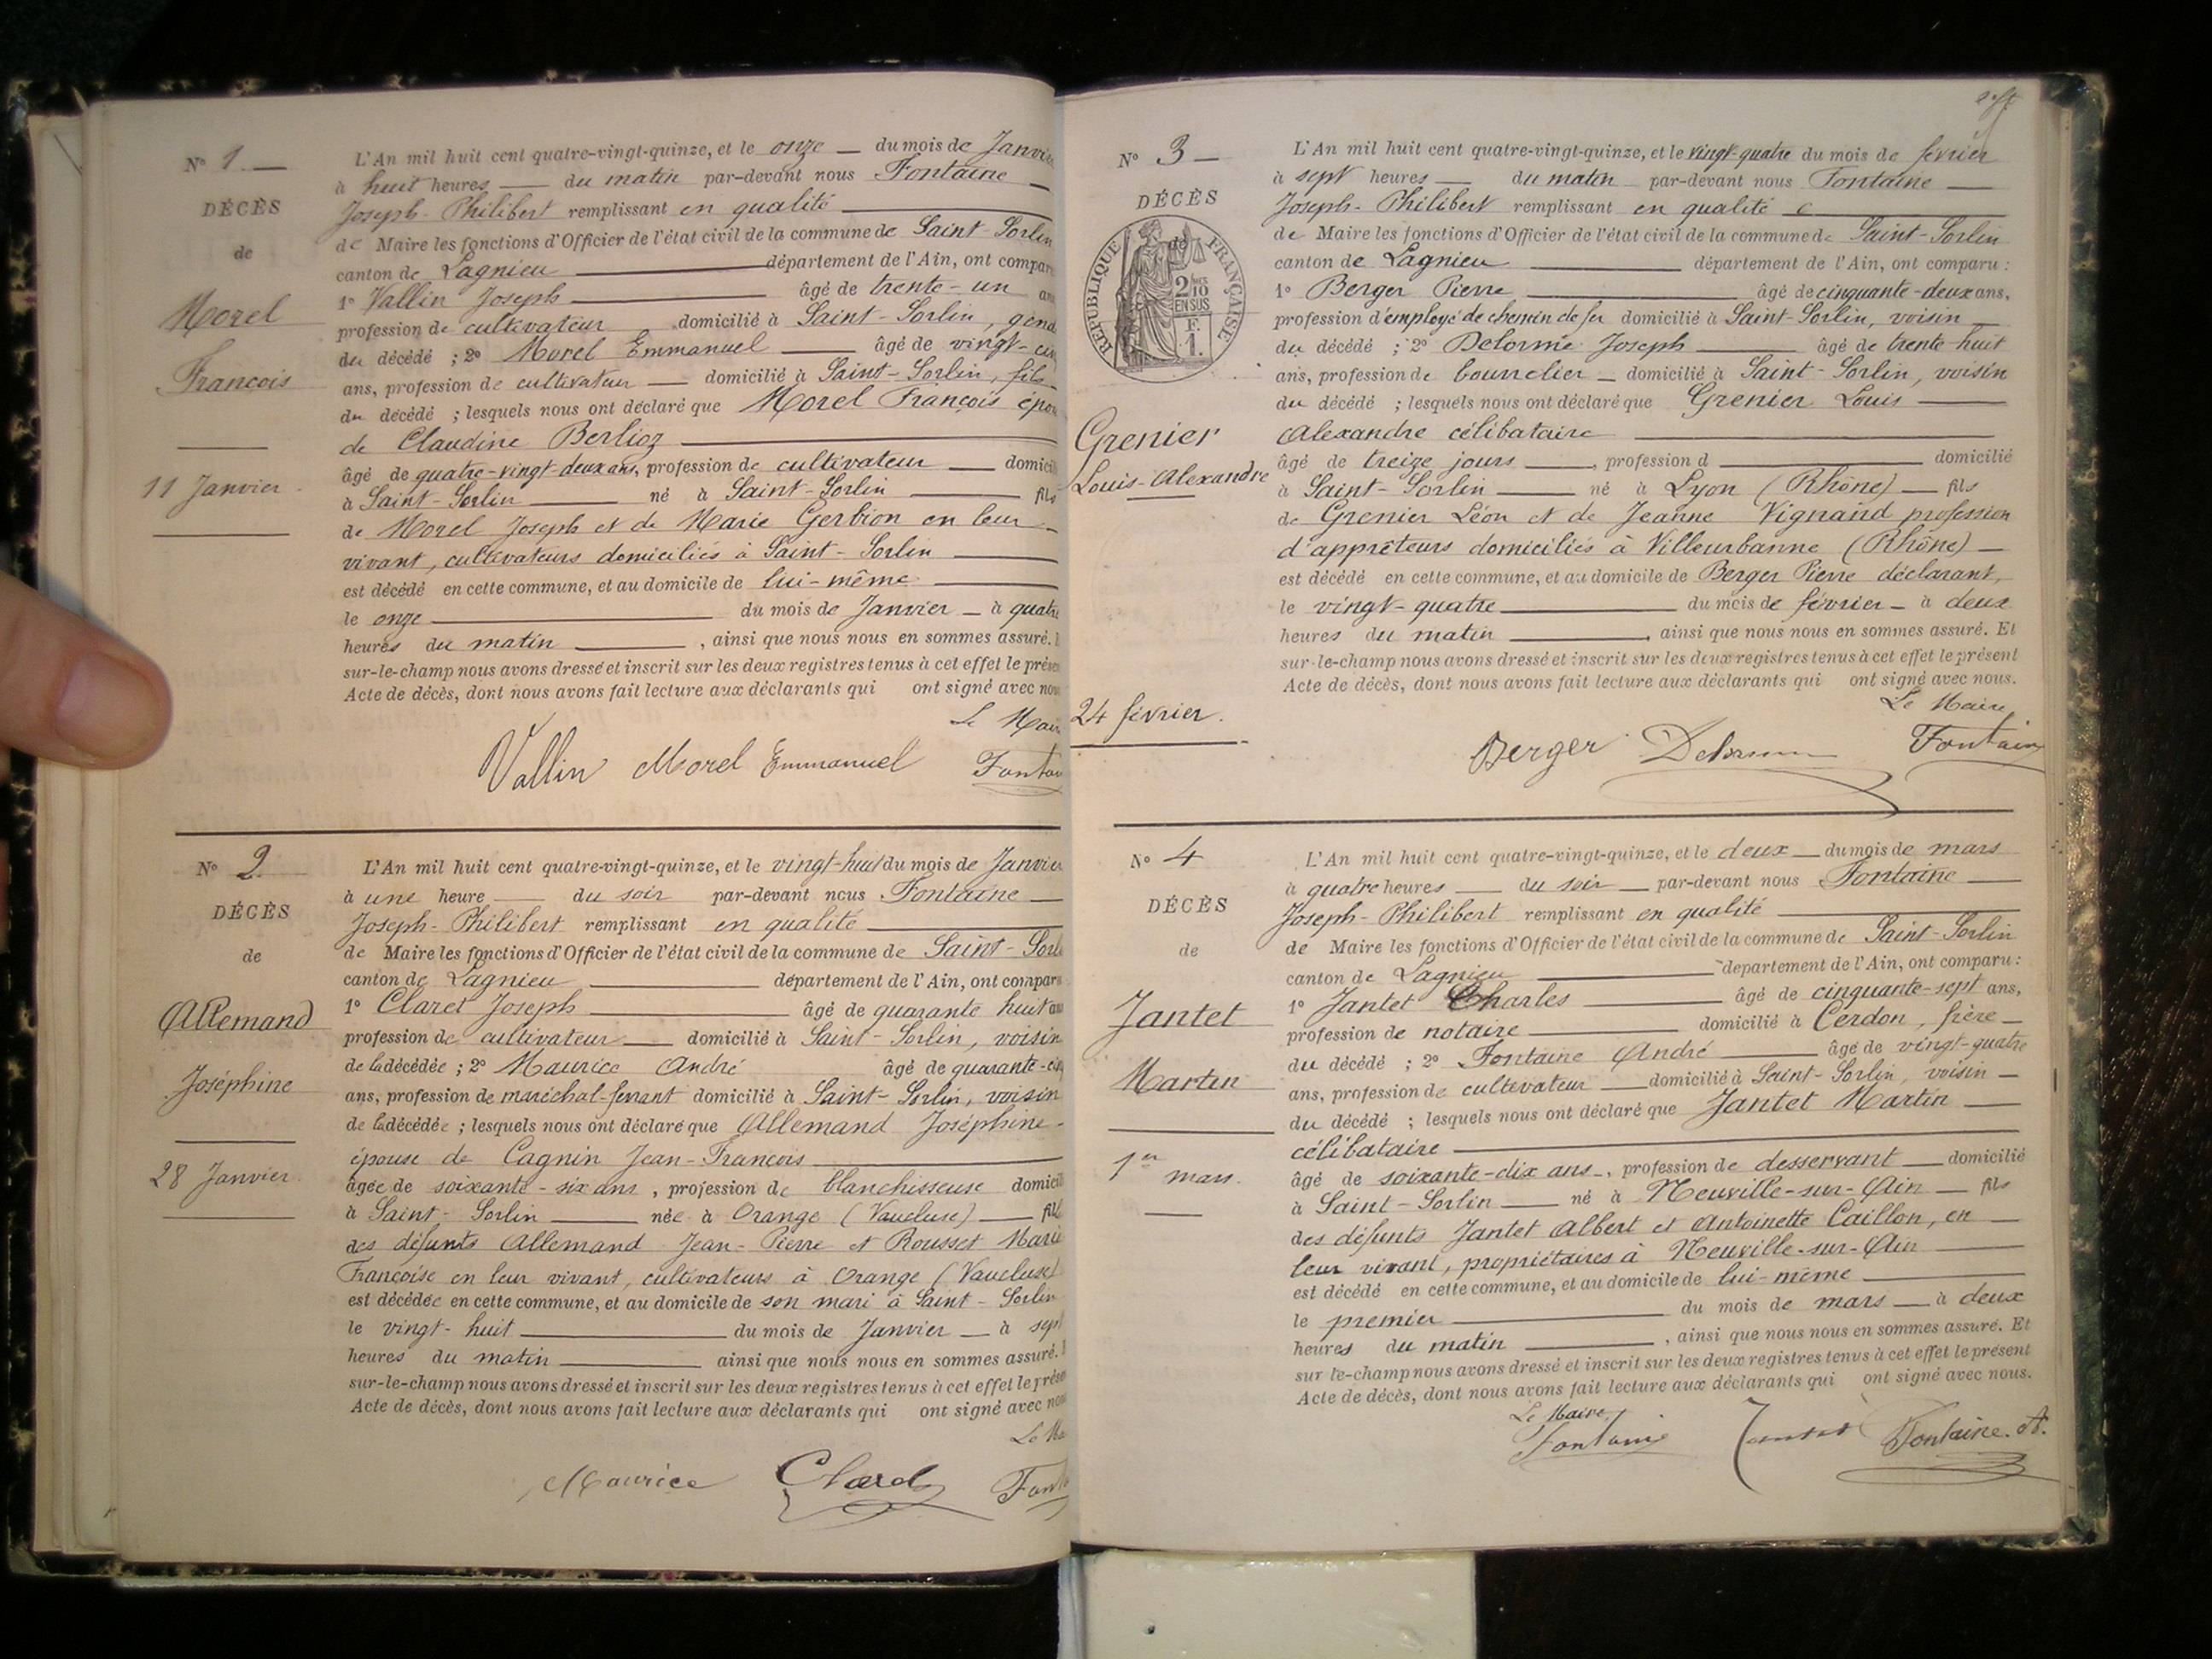 N° 1
DÉCÈS
de
Morel
François
11 Janvier
L'An mil huit cent quatre-vingt-quinze, et le onze du mois de Janvier
à huit heures du matin par-devant nous Fontaine
Joseph-Philibert remplissant en qualité
de Maire les fonctions d'Officier de l'état civil de la commune de Saint-Sorlin
canton de Lagnieu département de l'Ain, ont compar
1° Vallin Joseph âgé de trente-un an
profession de cultivateur domicilié à Saint-Sorlin, gend
du décédé ; 2° Morel Emmanuel âgé de vingt-cin
ans, profession de cultivateur domicilié à Saint-Sorlin, fils
du décédé ; lesquels nous ont déclaré que Morel François épou
de Claudine Berlioz
âgé de quatre-vingt-deux ans, profession de cultivateur domicil
à Saint-Sorlin né à Saint-Sorlin fils
de Morel Joseph et de Marie Gerbion en leur
vivant, cultivateurs domiciliés à Saint-Sorlin
est décédé en cette commune, et au domicile de lui-même
le onze du mois de Janvier à quatre
heures du matin , ainsi que nous nous en sommes assuré.
sur-le-champ nous avons dressé et inscrit sur les deux registres tenus à cet effet le prése
Acte de décès, dont nous avons fait lecture aux déclarants qui ont signé avec nou
Le Mair
Vallin Morel Emmanuel Fontai
N° 2
DÉCÈS
de
Allemand
Joséphine
28 Janvier
L'An mil huit cent quatre-vingt-quinze, et le vingt-huit du mois de Janvier
à une heure du soir par-devant nous Fontaine
Joseph-Philibert remplissant en qualité
de Maire les fonctions d'Officier de l'état civil de la commune de Saint-Sorli
canton de Lagnieu département de l'Ain, ont compar
1° Claret Joseph âgé de quarante huit an
profession de cultivateur domicilié à Saint-Sorlin, voisin
de la décédée ; 2° Maurice André âgé de quarante-cinq
ans, profession de maréchal-ferrant domicilié à Saint-Sorlin, voisin
de la décédée ; lesquels nous ont déclaré que Allemand Joséphine
épouse de Cagnin Jean-François
âgée de soixante-six ans, profession de blanchisseuse domicil
à Saint-Sorlin née à Orange (Vaucluse) fill
des défunts Allemand Jean-Pierre et Rousset Marie
Françoise en leur vivant, cultivateurs à Orange (Vaucluse)
est décédée en cette commune, et au domicile de son mari à Saint-Sorlin
le vingt-huit du mois de Janvier à sept
heures du matin ainsi que nous nous en sommes assuré.
sur-le-champ nous avons dressé et inscrit sur les deux registres tenus à cet effet le prése
Acte de décès, dont nous avons fait lecture aux déclarants qui ont signé avec nou
Le Ma
Maurice Claret Font
N° 3
DÉCÈS
de
RÉPUBLIQUE FRANÇAISE
2/10
EN SUS
F.
1.
Grenier
Louis-Alexandre
24 février.
L'An mil huit cent quatre-vingt-quinze, et le vingt-quatre du mois de février
à sept heures du matin par-devant nous Fontaine
Joseph-Philibert remplissant en qualité
de Maire les fonctions d'Officier de l'état civil de la commune de Saint-Sorlin
canton de Lagnieu département de l'Ain, ont comparu :
1° Berger Pierre âgé de cinquante-deux ans,
profession d'employé de chemin de fer domicilié à Saint-Sorlin, voisin
du décédé ; 2° Delorme Joseph âgé de trente-huit
ans, profession de bourrelier domicilié à Saint-Sorlin, voisin
du décédé ; lesquels nous ont déclaré que Grenier Louis
Alexandre célibataire
âgé de treize jours, profession d domicilié
à Saint-Sorlin né à Lyon (Rhône) fils
de Grenier Léon et de Jeanne Vignand profession
d'apprêteurs domiciliés à Villeurbanne (Rhône)
est décédé en cette commune, et au domicile de Berger Pierre déclarant,
le vingt-quatre du mois de février à deux
heures du matin , ainsi que nous nous en sommes assuré. Et
sur-le-champ nous avons dressé et inscrit sur les deux registres tenus à cet effet le présent
Acte de décès, dont nous avons fait lecture aux déclarants qui ont signé avec nous.
Le Maire
Berger Delorme Fontaine
N° 4
DÉCÈS
de
Jantet
Martin
1er mars.
L'An mil huit cent quatre-vingt-quinze, et le deux du mois de mars
à quatre heures du soir par-devant nous Fontaine
Joseph-Philibert remplissant en qualité
de Maire les fonctions d'Officier de l'état civil de la commune de Saint-Sorlin
canton de Lagnieu département de l'Ain, ont comparu :
1° Jantet Charles âgé de cinquante-sept ans,
profession de notaire domicilié à Cerdon, frère
du décédé ; 2° Fontaine André âgé de vingt-quatre
ans, profession de cultivateur domicilié à Saint-Sorlin, voisin
du décédé ; lesquels nous ont déclaré que Jantet Martin
célibataire
âgé de soixante-dix ans, profession de desservant domicilié
à Saint-Sorlin né à Neuville-sur-Ain fils
des défunts Jantet Albert et Antoinette Caillon, en
leur vivant, propriétaires à Neuville-sur-Ain
est décédé en cette commune, et au domicile de lui-même
le premier du mois de mars à deux
heures du matin , ainsi que nous nous en sommes assuré. Et
sur le-champ nous avons dressé et inscrit sur les deux registres tenus à cet effet le présent
Acte de décès, dont nous avons fait lecture aux déclarants qui ont signé avec nous.
Le Maire
Fontaine Jantet Fontaine. A.